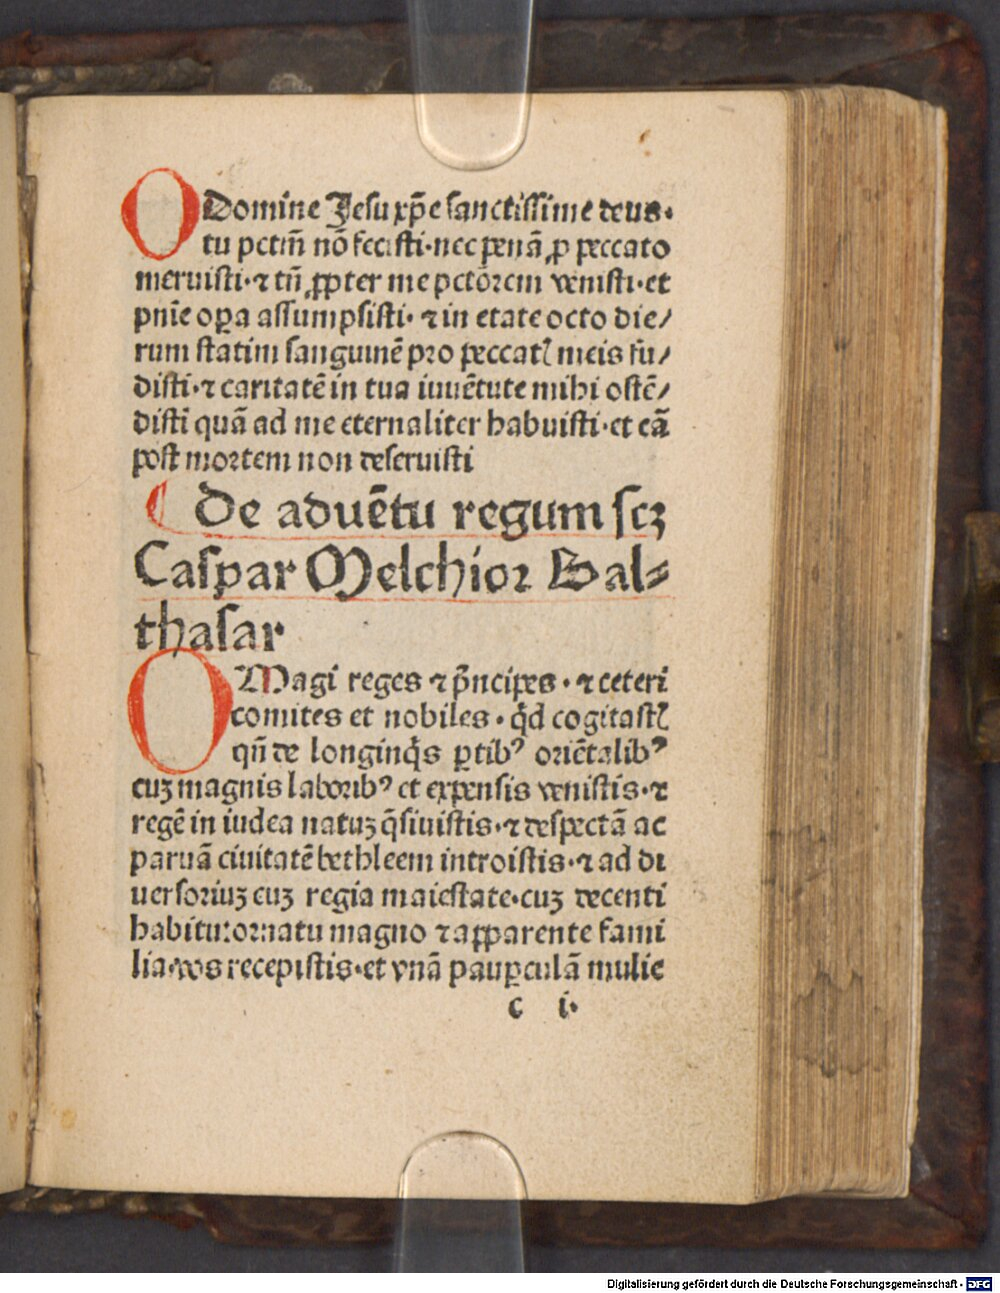 O Domine Jesu xp̄e sanctissime deus·
tu pctm̄ nō fecisti·nec penā ꝓ peccato
meruisti·⁊ tn̄ ꝓpter me pctōrem venisti·et
pnīe oꝑa assumpsisti· ⁊ in etate octo die/
rum statim sanguinē pro peccatꝭ meis fu/
disti·⁊ caritatē in tua iuuētute mihi ostē/
disti quā ad me eternaliter habuisti·et eā
post mortem non deseruisti
¶ De aduētu regum scꝫ
Caspar Melchior Bal⸗
thasar
O Magi reges ⁊ p̄ncipes · ⁊ ceteri
comites et nobiles · qd̄ cogitastꝭ
qn̄ de longinq̄s ꝑtibꝰ oriētalibꝰ
cuꝫ magnis laboribꝰ et expensis venistis·⁊
regē in iudea natuꝫ q̄siuistis·⁊ despectā ac
paruā ciuitatē bethleem introistis·⁊ ad di
uersoriuꝫ cuꝫ regia maiestate·cuꝫ decenti
habitu:ornatu magno ⁊ apparente fami
lia·vos recepistis·et vnā pauꝑculā mulie
c i·
Digitalisierung gefördert durch die Deutsche Forschungsgemeinschaft · DFG